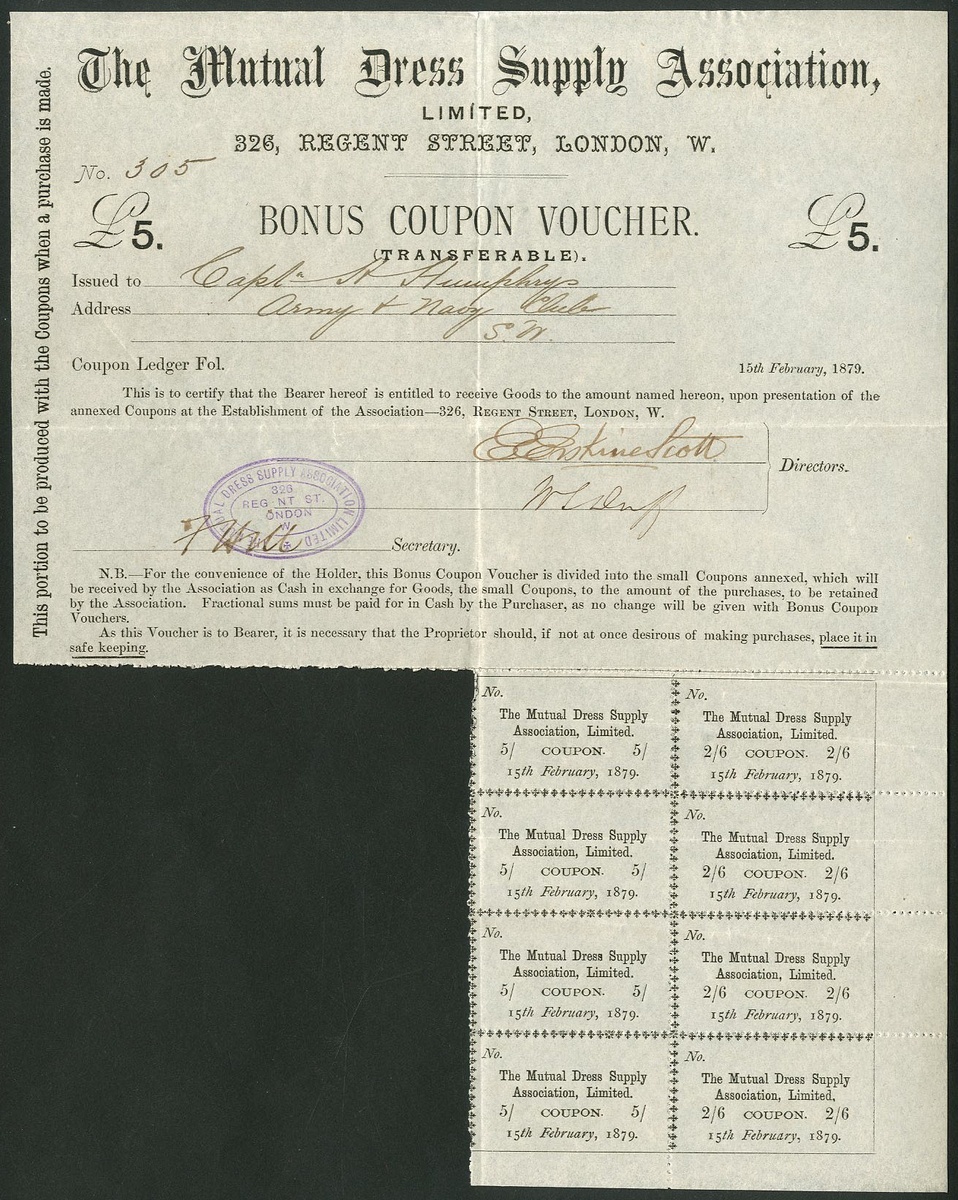 The Mutual Dress Supply Association,
LIMITED,
326, REGENT STREET, LONDON, W.
No. 305
£5. BONUS COUPON VOUCHER. £5.
(TRANSFERABLE).
Issued to Captn H Humphrys
Address Army & Navy Club
S.W.
Coupon Ledger Fol. 15th February, 1879.
This is to certify that the Bearer hereof is entitled to receive Goods to the amount named hereon, upon presentation of the
annexed Coupons at the Establishment of the Association—326, REGENT STREET, LONDON, W.
E Erskine Scott
Directors.
DRESS SUPPLY ASSOCIATION LIMITED
326
REGENT ST.
LONDON
W
Secretary.
N.B.—For the convenience of the Holder, this Bonus Coupon Voucher is divided into the small Coupons annexed, which will
be received by the Association as Cash in exchange for Goods, the small Coupons, to the amount of the purchases, to be retained
by the Association. Fractional sums must be paid for in Cash by the Purchaser, as no change will be given with Bonus Coupon
Vouchers.
As this Voucher is to Bearer, it is necessary that the Proprietor should, if not at once desirous of making purchases, place it in
safe keeping.
This portion to be produced with the Coupons when a purchase is made.
No.
The Mutual Dress Supply
Association, Limited.
5/ COUPON. 5/
15th February, 1879.
No.
The Mutual Dress Supply
Association, Limited.
2/6 COUPON. 2/6
15th February, 1879.
No.
The Mutual Dress Supply
Association, Limited.
5/ COUPON. 5/
15th February, 1879.
No.
The Mutual Dress Supply
Association, Limited.
2/6 COUPON. 2/6
15th February, 1879.
No.
The Mutual Dress Supply
Association, Limited.
5/ COUPON. 5/
15th February, 1879.
No.
The Mutual Dress Supply
Association, Limited.
2/6 COUPON. 2/6
15th February, 1879.
No.
The Mutual Dress Supply
Association, Limited.
5/ COUPON. 5/
15th February, 1879.
No.
The Mutual Dress Supply
Association, Limited,
2/6 COUPON. 2/6
15th February, 1879.